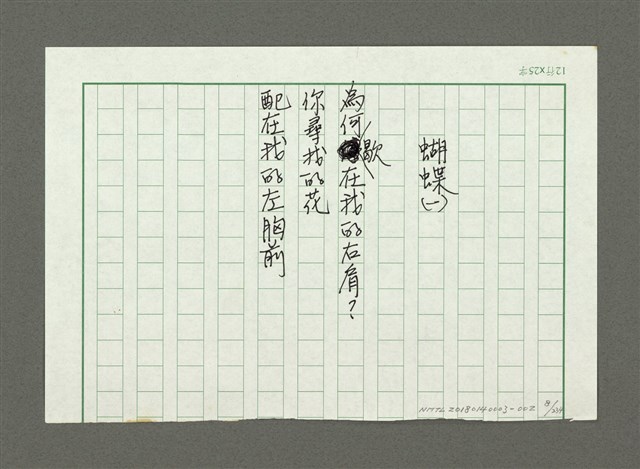 蝴蝶(一)
為何歇在我的右肩？
你尋找的花
配在我的左胸前
12行X25字
NMTL20180140003-002